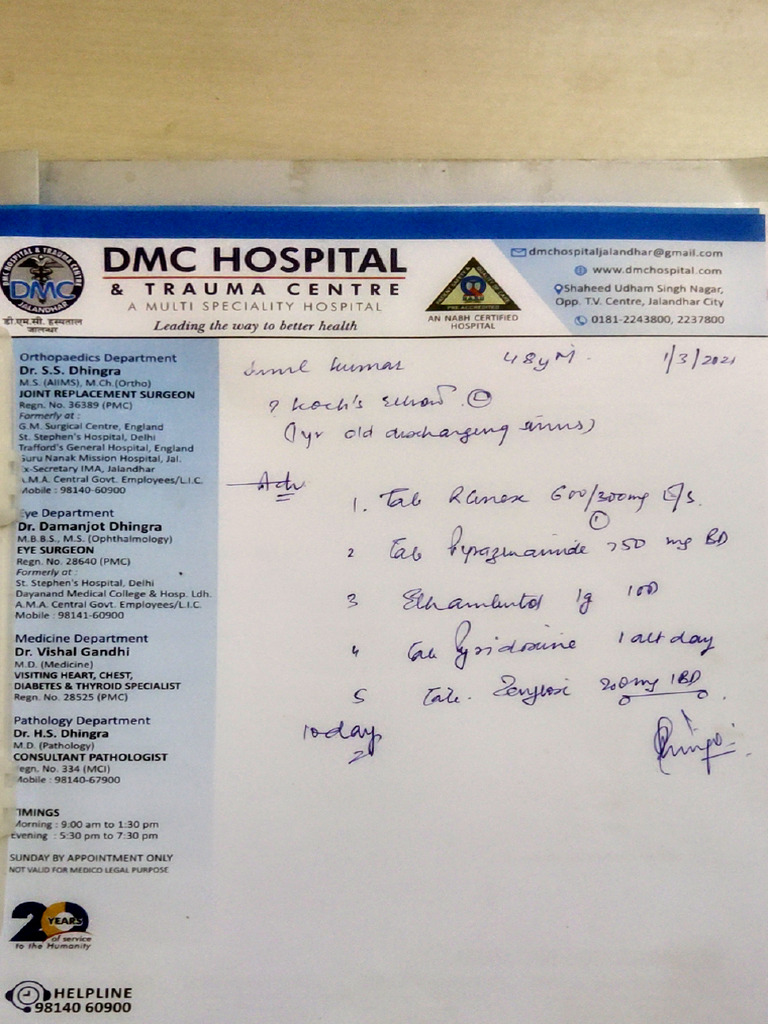 DMC HOSPITAL & TRAUMA CENTRE
DMC
JALANDHAR
डी.एम.सी. हस्पताल
जालन्धर
DMC HOSPITAL
& TRAUMA CENTRE
A MULTI SPECIALITY HOSPITAL
Leading the way to better health
AN NABH CERTIFIED
HOSPITAL
dmchospitaljalandhar@gmail.com
www.dmchospital.com
Shaheed Udham Singh Nagar,
Opp. T.V. Centre, Jalandhar City
0181-2243800, 2237800
Orthopaedics Department
Dr. S.S. Dhingra
M.S. (AIIMS), M.Ch.(Ortho)
JOINT REPLACEMENT SURGEON
Regn. No. 36389 (PMC)
Formerly at :
G.M. Surgical Centre, England
St. Stephen's Hospital, Delhi
Trafford's General Hospital, England
Guru Nanak Mission Hospital, Jal.
Ex-Secretary IMA, Jalandhar
A.M.A. Central Govt. Employees/L.I.C.
Mobile : 98140-60900
Eye Department
Dr. Damanjot Dhingra
M.B.B.S., M.S. (Ophthalmology)
EYE SURGEON
Regn. No. 28640 (PMC)
Formerly at :
St. Stephen's Hospital, Delhi
Dayanand Medical College & Hosp. Ldh.
A.M.A. Central Govt. Employees/L.I.C.
Mobile : 98141-60900
Medicine Department
Dr. Vishal Gandhi
M.D. (Medicine)
VISITING HEART, CHEST,
DIABETES & THYROID SPECIALIST
Regn. No. 28525 (PMC)
Pathology Department
Dr. H.S. Dhingra
M.D. (Pathology)
CONSULTANT PATHOLOGIST
Regn. No. 334 (MCI)
Mobile : 98140-67900
TIMINGS
Morning : 9:00 am to 1:30 pm
Evening : 5:30 pm to 7:30 pm
SUNDAY BY APPOINTMENT ONLY
NOT VALID FOR MEDICO LEGAL PURPOSE
20 YEARS
of service
to the Humanity
HELPLINE
98140 60900
Kumar 48y M. 1/3/2021
? Koch's elbow. L
(1yr old discharging sinus)
Adv
1. Tab 600/300mg
2 Tab Pyrazinamide 750 mg BD
3 Ethambutol 1g 1OD
4 Tab Pyridoxine 1 alt day
5 Tab. 200mg 1BD
10 days